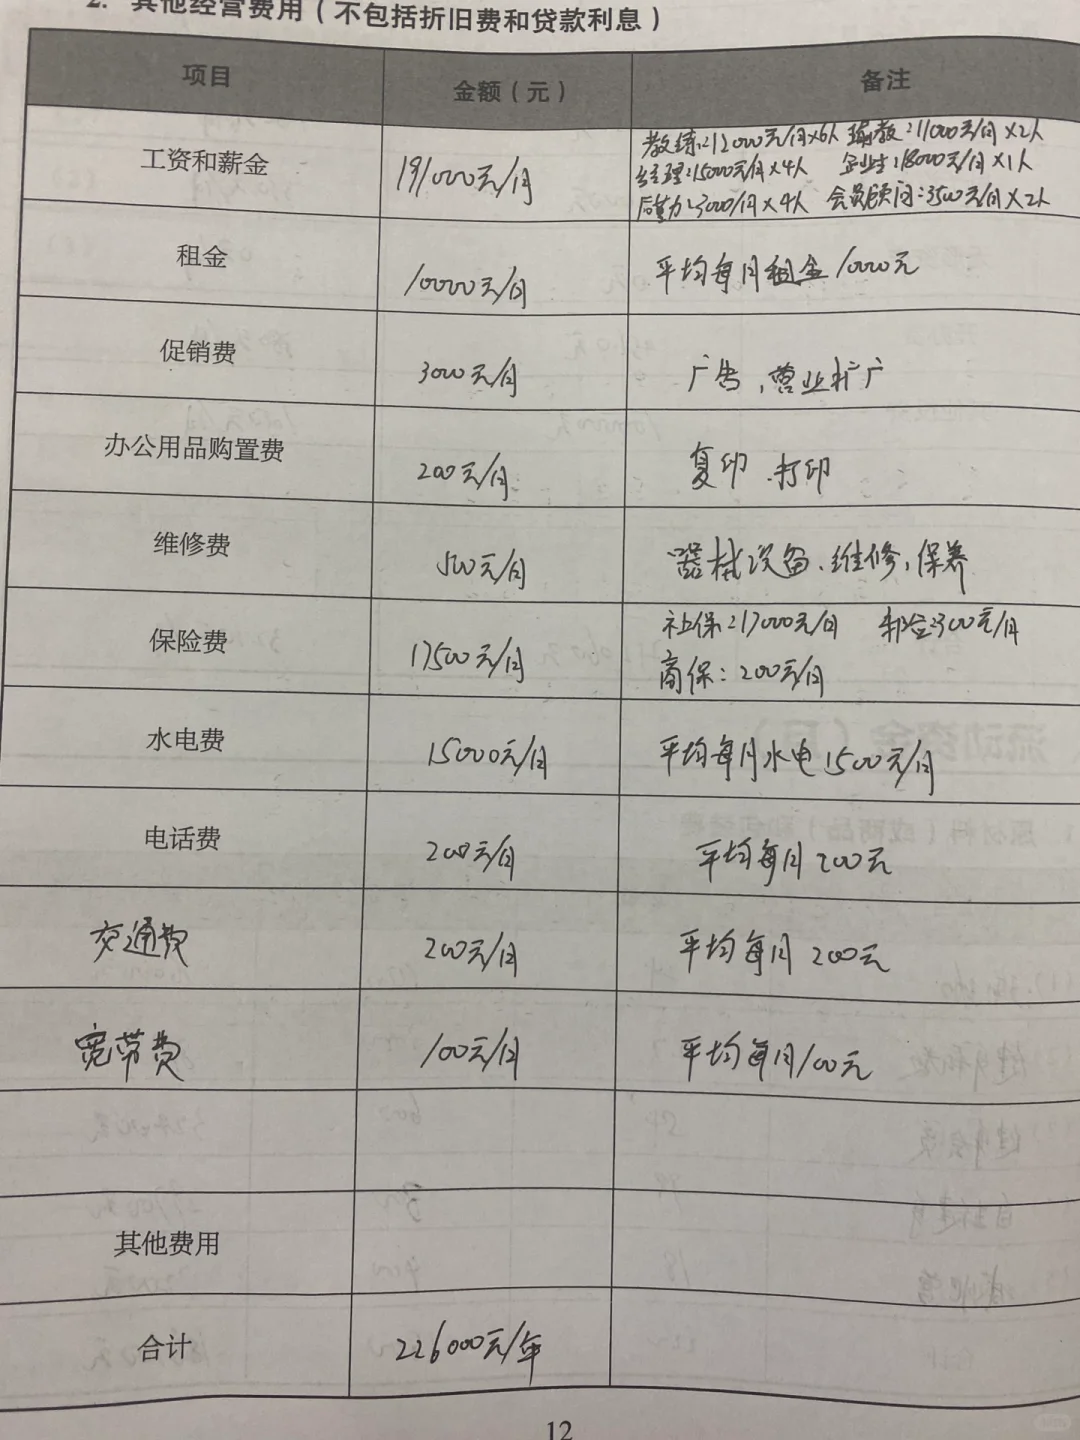 2. 其他经营费用（不包括折旧费和贷款利息）
项目 金额（元） 备注
工资和薪金 191000元/月 教练:12000元/月×6人 瑜教:11000元/月×2人
经理:15000元/月×4人 企业主:18000元/月×1人
后勤:3000/月×4人 会员顾问:3500元/月×2人
租金 10000元/月 平均每月租金10000元
促销费 3000元/月 广告、营业扩广
办公用品购置费 200元/月 复印、打印
维修费 500元/月 器械设备、维修、保养
保险费 17500元/月 社保:17000元/月 300元/月
商保:200元/月
水电费 15000元/月 平均每月水电1500元/月
电话费 200元/月 平均每月200元
交通费 200元/月 平均每月200元
宽带费 100元/月 平均每月100元
其他费用
合计 226000元/年
12